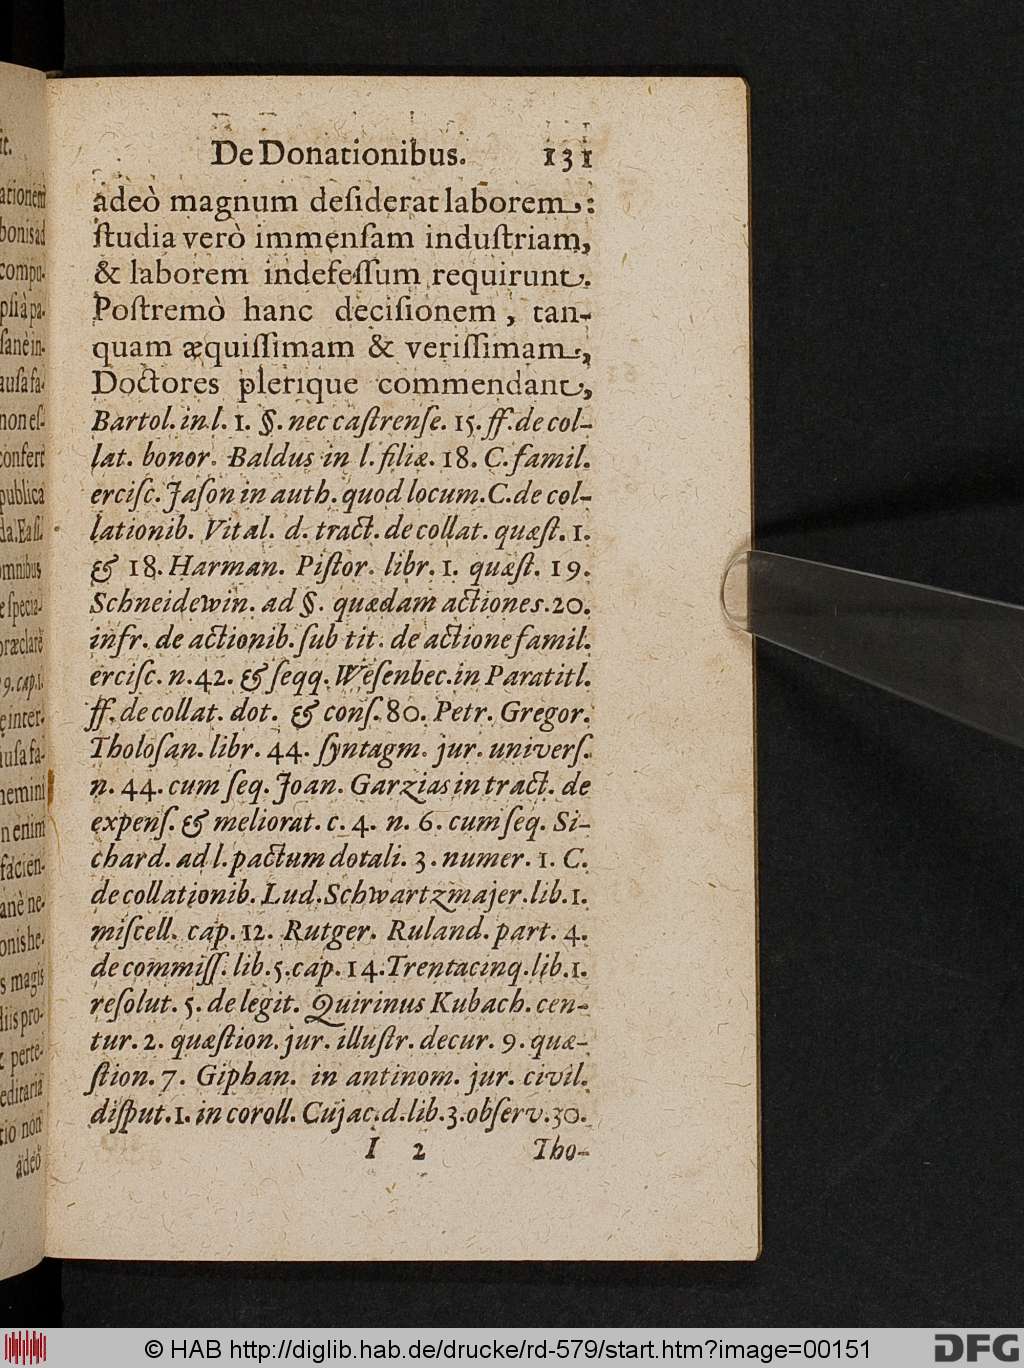 De Donationibus. 131
adeò magnum desiderat laborem:
ſtudia verò immenſam induſtriam,
& laborem indefeſſum requirunt.
Poſtremò hanc deciſionem, tan-
quam æquiſſimam & veriſſimam,
Doctores plerique commendant,
Bartol. in l. 1. §. nec caſtrenſe. 15. ff. de col-
lat. bonor. Baldus in l. filiæ. 18. C. famil.
erciſc. Jaſon in auth. quod locum. C. de col-
lationib. Vital. d. tract. de collat. quæſt. 1.
& 18. Harman. Piſtor. libr. 1. quæſt. 19.
Schneidewin. ad §. quædam actiones. 20.
infr. de actionib. ſub tit. de actione famil.
erciſc. n. 42. & ſeqq. Weſenbec. in Paratitl.
ff. de collat. dot. & conſ. 80. Petr. Gregor.
Tholoſan. libr. 44. ſyntagm. jur. univerſ.
n. 44. cum ſeq. Joan. Garzias in tract. de
expenſ. & meliorat. c. 4. n. 6. cum ſeq. Si-
chard. ad l. pactum dotali. 3. numer. 1. C.
de collationib. Lud. Schwartzmajer. lib. 1.
miſcell. cap. 12. Rutger. Ruland. part. 4.
de commiſſ. lib. 5. cap. 14. Trentacinq. lib. 1.
reſolut. 5. de legit. Quirinus Kubach. cen-
tur. 2. quæſtion. jur. illuſtr. decur. 9. quæ-
ſtion. 7. Giphan. in antinom. jur. civil.
diſput. 1. in coroll. Cujac. d. lib. 3. obſerv. 30.
I 2 Tho-
© HAB http://diglib.hab.de/drucke/rd-579/start.htm?image=00151
DFG